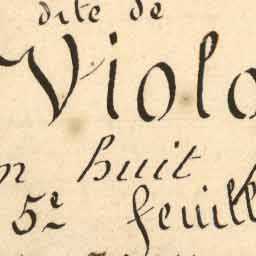 dite de
Violo
n huit
5e feuill